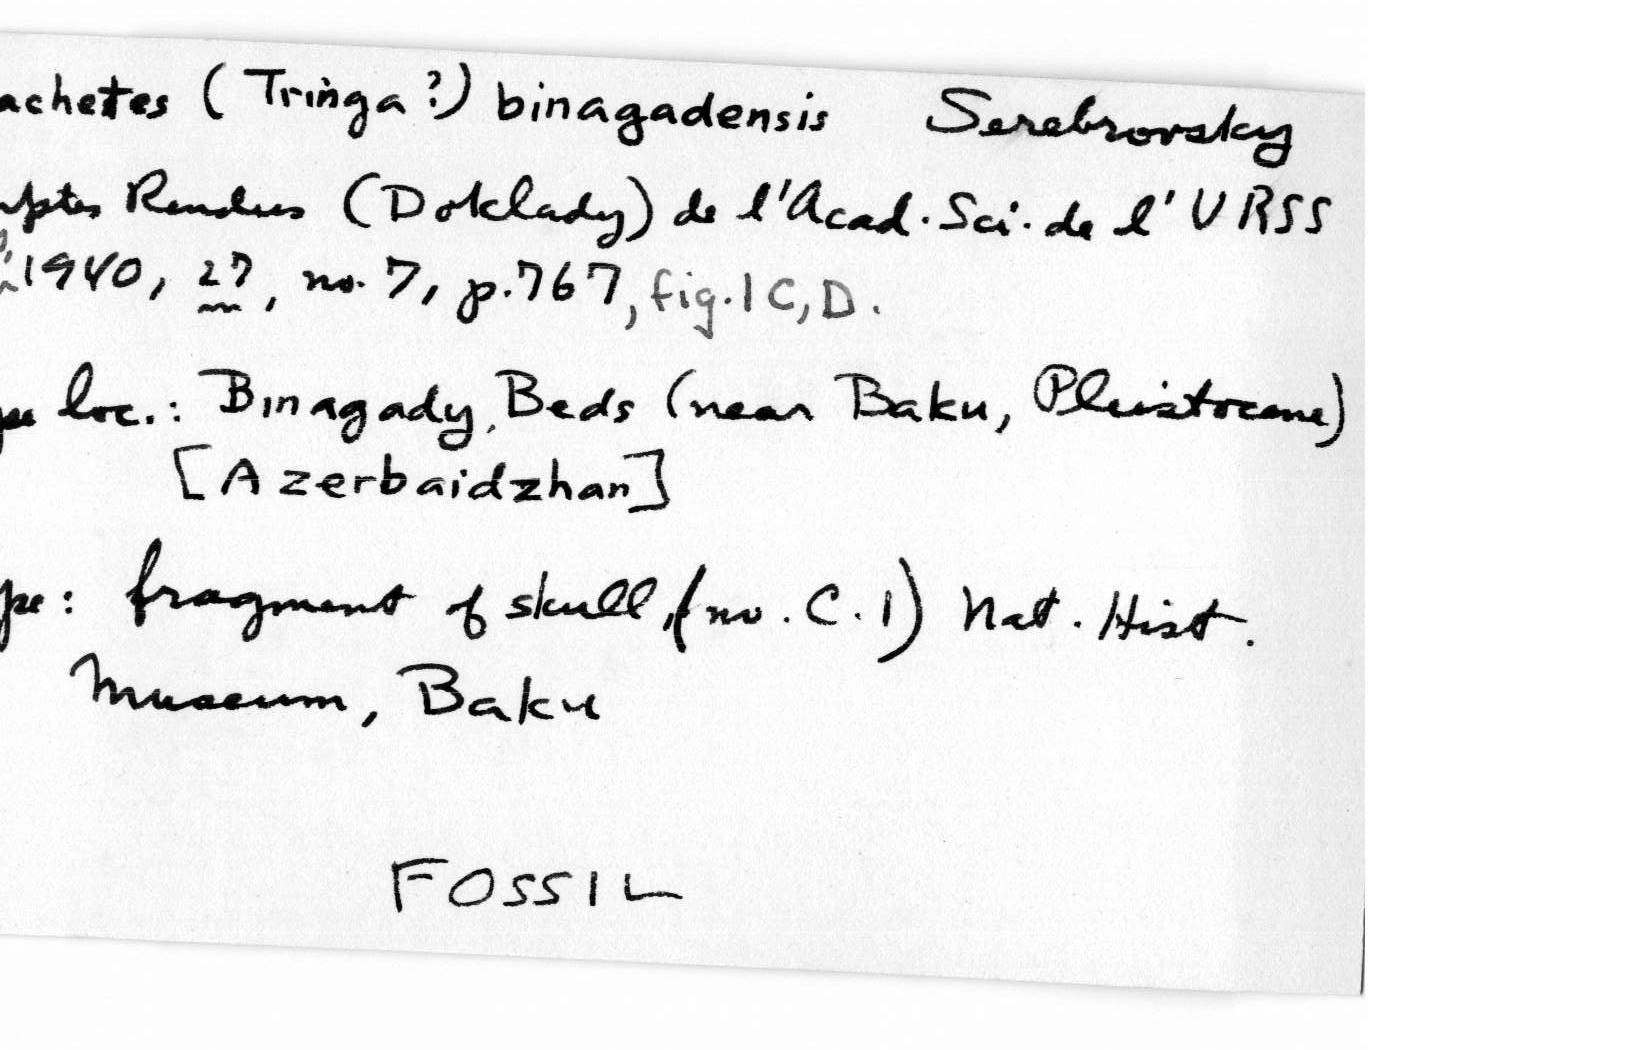 achetes (Tringa?) binagadensis Serebrovsky
mptes Rendus (Doklady) de l'Acad. Sci. de l'URSS
1940, 27, no. 7, p. 767, fig. 1 C, D.
pe loc.: Binagady Beds (near Baku, Pleistocene)
[Azerbaidzhan]
pe: fragment of skull, (no. C. 1) Nat. Hist.
Museum, Baku
FOSSIL